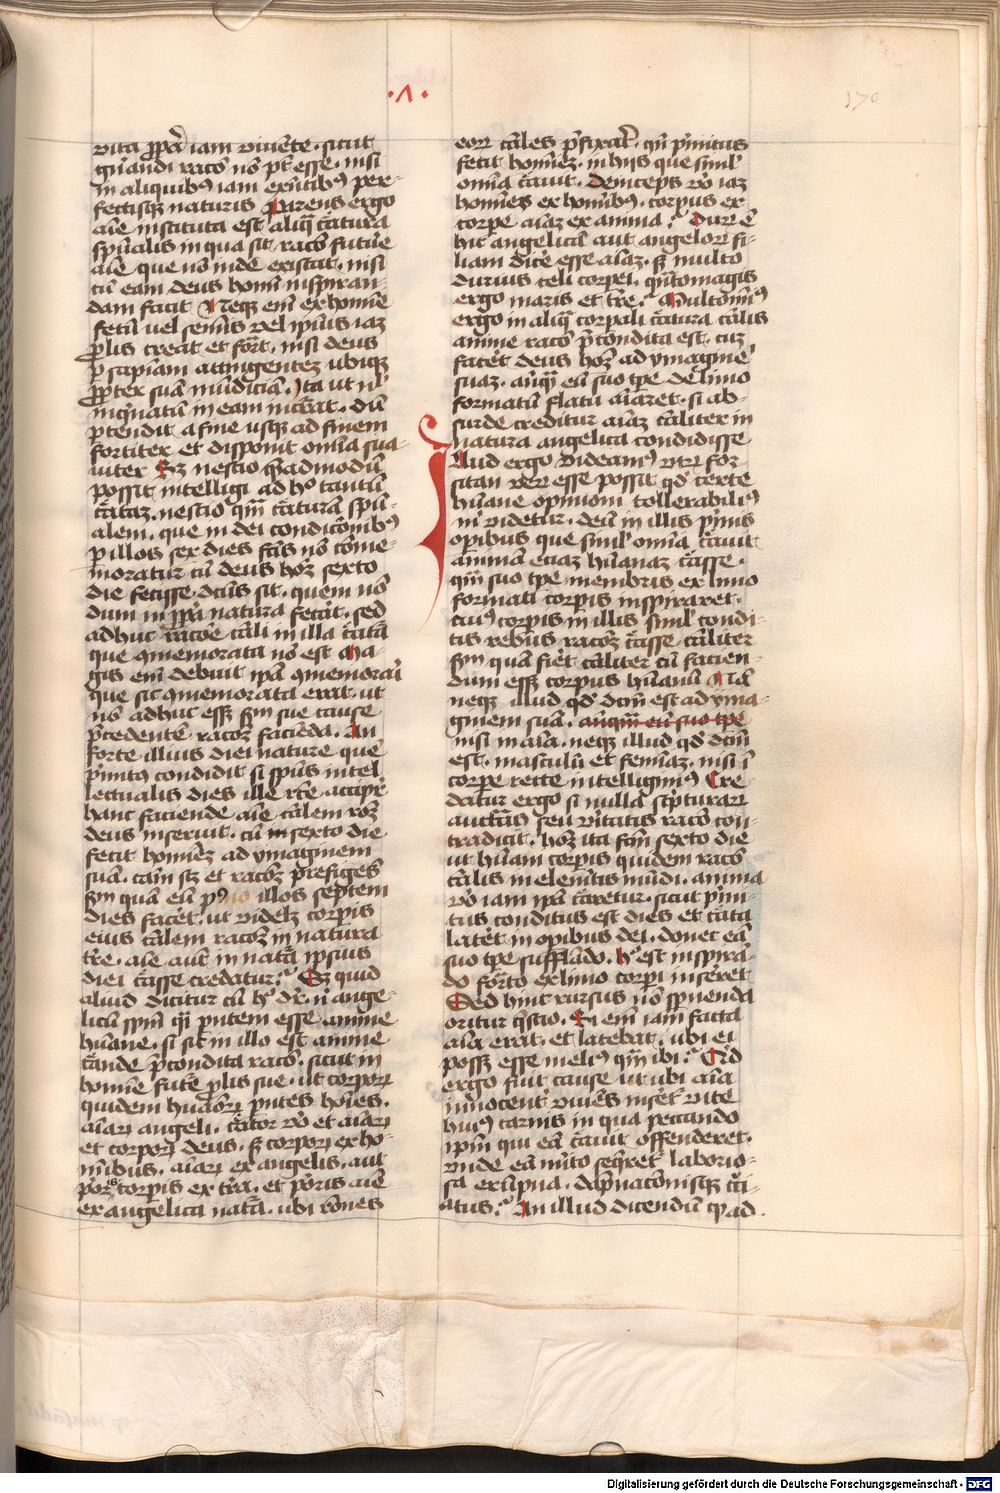 ·Λ·
170
vita ꝓp̄a iam vivēte · sicut
gn̄andi racō nō pt̄ esse · nisi
in aliquibꝯ iam exn̄tibꝯ per-
fectisqꝫ naturis Parens ergo
aīe instituta est aliq̄ c̄atura
spūalis in qua sit racō future
aīe que nō inde existat · nisi
cū eam deus homī inspiran-
dam facit Neqꝫ enī ex homīe
fetū vel semīs vel ipius iaꝫ
ꝓlis creat et for̄t · nisi deus
ꝑ sapiam attingentez ubiqꝫ
ꝓpter suā mūdiciā · Ita ut n̄l
inq̄natū in eam incͬrat · dū
ꝑtendit a fine usqꝫ ad finem
fortiter et disponit omīa sua-
uiter Sꝫ nescio q̄admodū
possit intelligi ad hº tantū
c̄ataz · nescio qͫ c̄aturā spū-
alem · que in dei condicōnibꝯ
ꝑ illos sex dies fc̄is nō cōme-
moratur cū deus hoꝫ sexto
die fecisse dc̄us sit · quem nō
dum in ꝓp̄a natura fecāt · sed
adhuc racōe cāli in illa c̄ata
que ꝯmemorata nō est Ma-
gis enī debuit ip̄a ꝯmemorari
que sic ꝯmemorata erat · ut
nō adhuc essꝫ scd̄m sue cause
p̄cedentē racōꝫ faciēda · An
forte illius diei nature quē
p̄mitꝯ condidit si sp̄us intel
lectualis dies ille rc̄te accipit̄
hanc faciende aīe cālem roꝫ
deus inseruit · cū in sexto die
fecit homīez ad ymaginem
suā · cām scꝫ et racōꝫ prefigēs
scd̄m quā eū p9 illos septem
dies facēt · ut videlꝫ corpis
eius cālem racōꝫ in natura
tr̄e · aīe aut̄ in natā ipsius
diei c̄asse credatur · Sꝫ quid
aliud dicitur cū hº dr̄ · n̄ ange-
licū spm̄ qͥi pn̄tem esse anime
hūane · si sit in illo est anime
c̄ande p̄condita racō · sicut in
homīe future ꝓlis sue · ut corpoꝝ
quidem huā͞oꝝ pn̄tes hoīes ·
aīaꝝ angeli · c̄ator vº et aīaꝝ
et corpoꝝ deus · sꝫ corpoꝝ ex ho-
mībus · aīaꝝ ex angelis · aut
p̄oꝝ corpis ex tr̄a · et p̄oris aīe
ex angelica natā · ubi racōnes
eoꝝ cāles p̄fixat̄ · qn̄ p̄mitus
fecit homīeꝫ · in hiis que simł
omīa c̄auit · Deinceps vº iaꝫ
homīes ex homībꝯ · corpus ex
corpe aīaꝫ ex anima · Durū ē
hic angelicā aut angeloꝝ fi-
liam dicē esse aīaꝫ · sꝫ multo
durius celi corpei · qn̄tomagis
ergo maris et tr̄e · Multomīꝯ
ergo in aliq̄ corpali c̄atura cālis
anime racō p̄condita est · cuꝫ
facēt deus hoꝫ ad ymaginē
suaꝫ · anq̄ eū suo tpe de limo
formatū flatu aīaret · si ab-
surde creditur aīaꝫ cāliter in
natura angelica condidisse
Illud ergo videamꝯ utꝝ for-
sitan veꝝ esse possit qd̄ certe
hūane opinioni tollerabiliꝯ
m̄ videtur · deū in illis p̄mis
opibus que simł omīa c̄auit
animā eciaꝫ hūanaꝫ c̄asse ·
qͫ suo tpe membris ex limo
formati corpis inspiraret ·
cuiꝯ corpis in illis simł condi-
tis rebus racōꝫ c̄asse cāliter
scd̄m quā fiēt cāliter cū facien-
dum essꝫ corpus hūanū Nā
neqꝫ illud qd̄ dcm̄ est ad yma-
ginem suā · anq̄m eū suo tpe
nisi in aīa · neqꝫ illud qd̄ dcm̄
est · masculū et femīaꝫ · nisi ī
corpe recte intelligimꝯ Cre
datur ergo si nulla sc̄pturaꝝ
auctͣtas seu v̄itatis racō con-
tradicit · hoꝫ ita fcm̄ sexto die
ut hūani corpis quidem racō
cālis in elemītis mūdi · anima
vº iam ip̄a c̄aretur · sicut p̄mi-
tus conditus est dies et c̄ata
latēt in opibus dei · donec eā
suo tpe sufflādo · hº est inspirā-
do formato ex limo corpi inseret
Sed hinc rursus nō spnenda
oritur q̄stio · Si enī iam facta
aīa erat · et latebat · ubi ei
possꝫ esse meliꝯ qͫ ibi · Qͥd
ergo fuit cause ut ubi aīa
innocent̄ viuēs inset̄ vite
huiꝯ carnis in qua peccando
ipm̄ qui eā c̄auit offenderet ·
vnde eā mīto seqͬret̄ laborio-
sa erūpna · dāpnacōnisqꝫ c̄ci-
atus · An illud dicendū qͥ ad
Digitalisierung gefördert durch die Deutsche Forschungsgemeinschaft · DFG